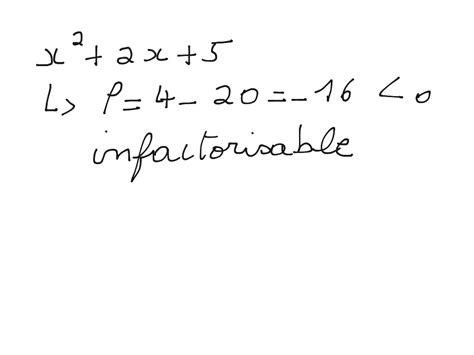 x² + 2x + 5
↳ ρ = 4 - 20 = -16 < 0
infactorisable